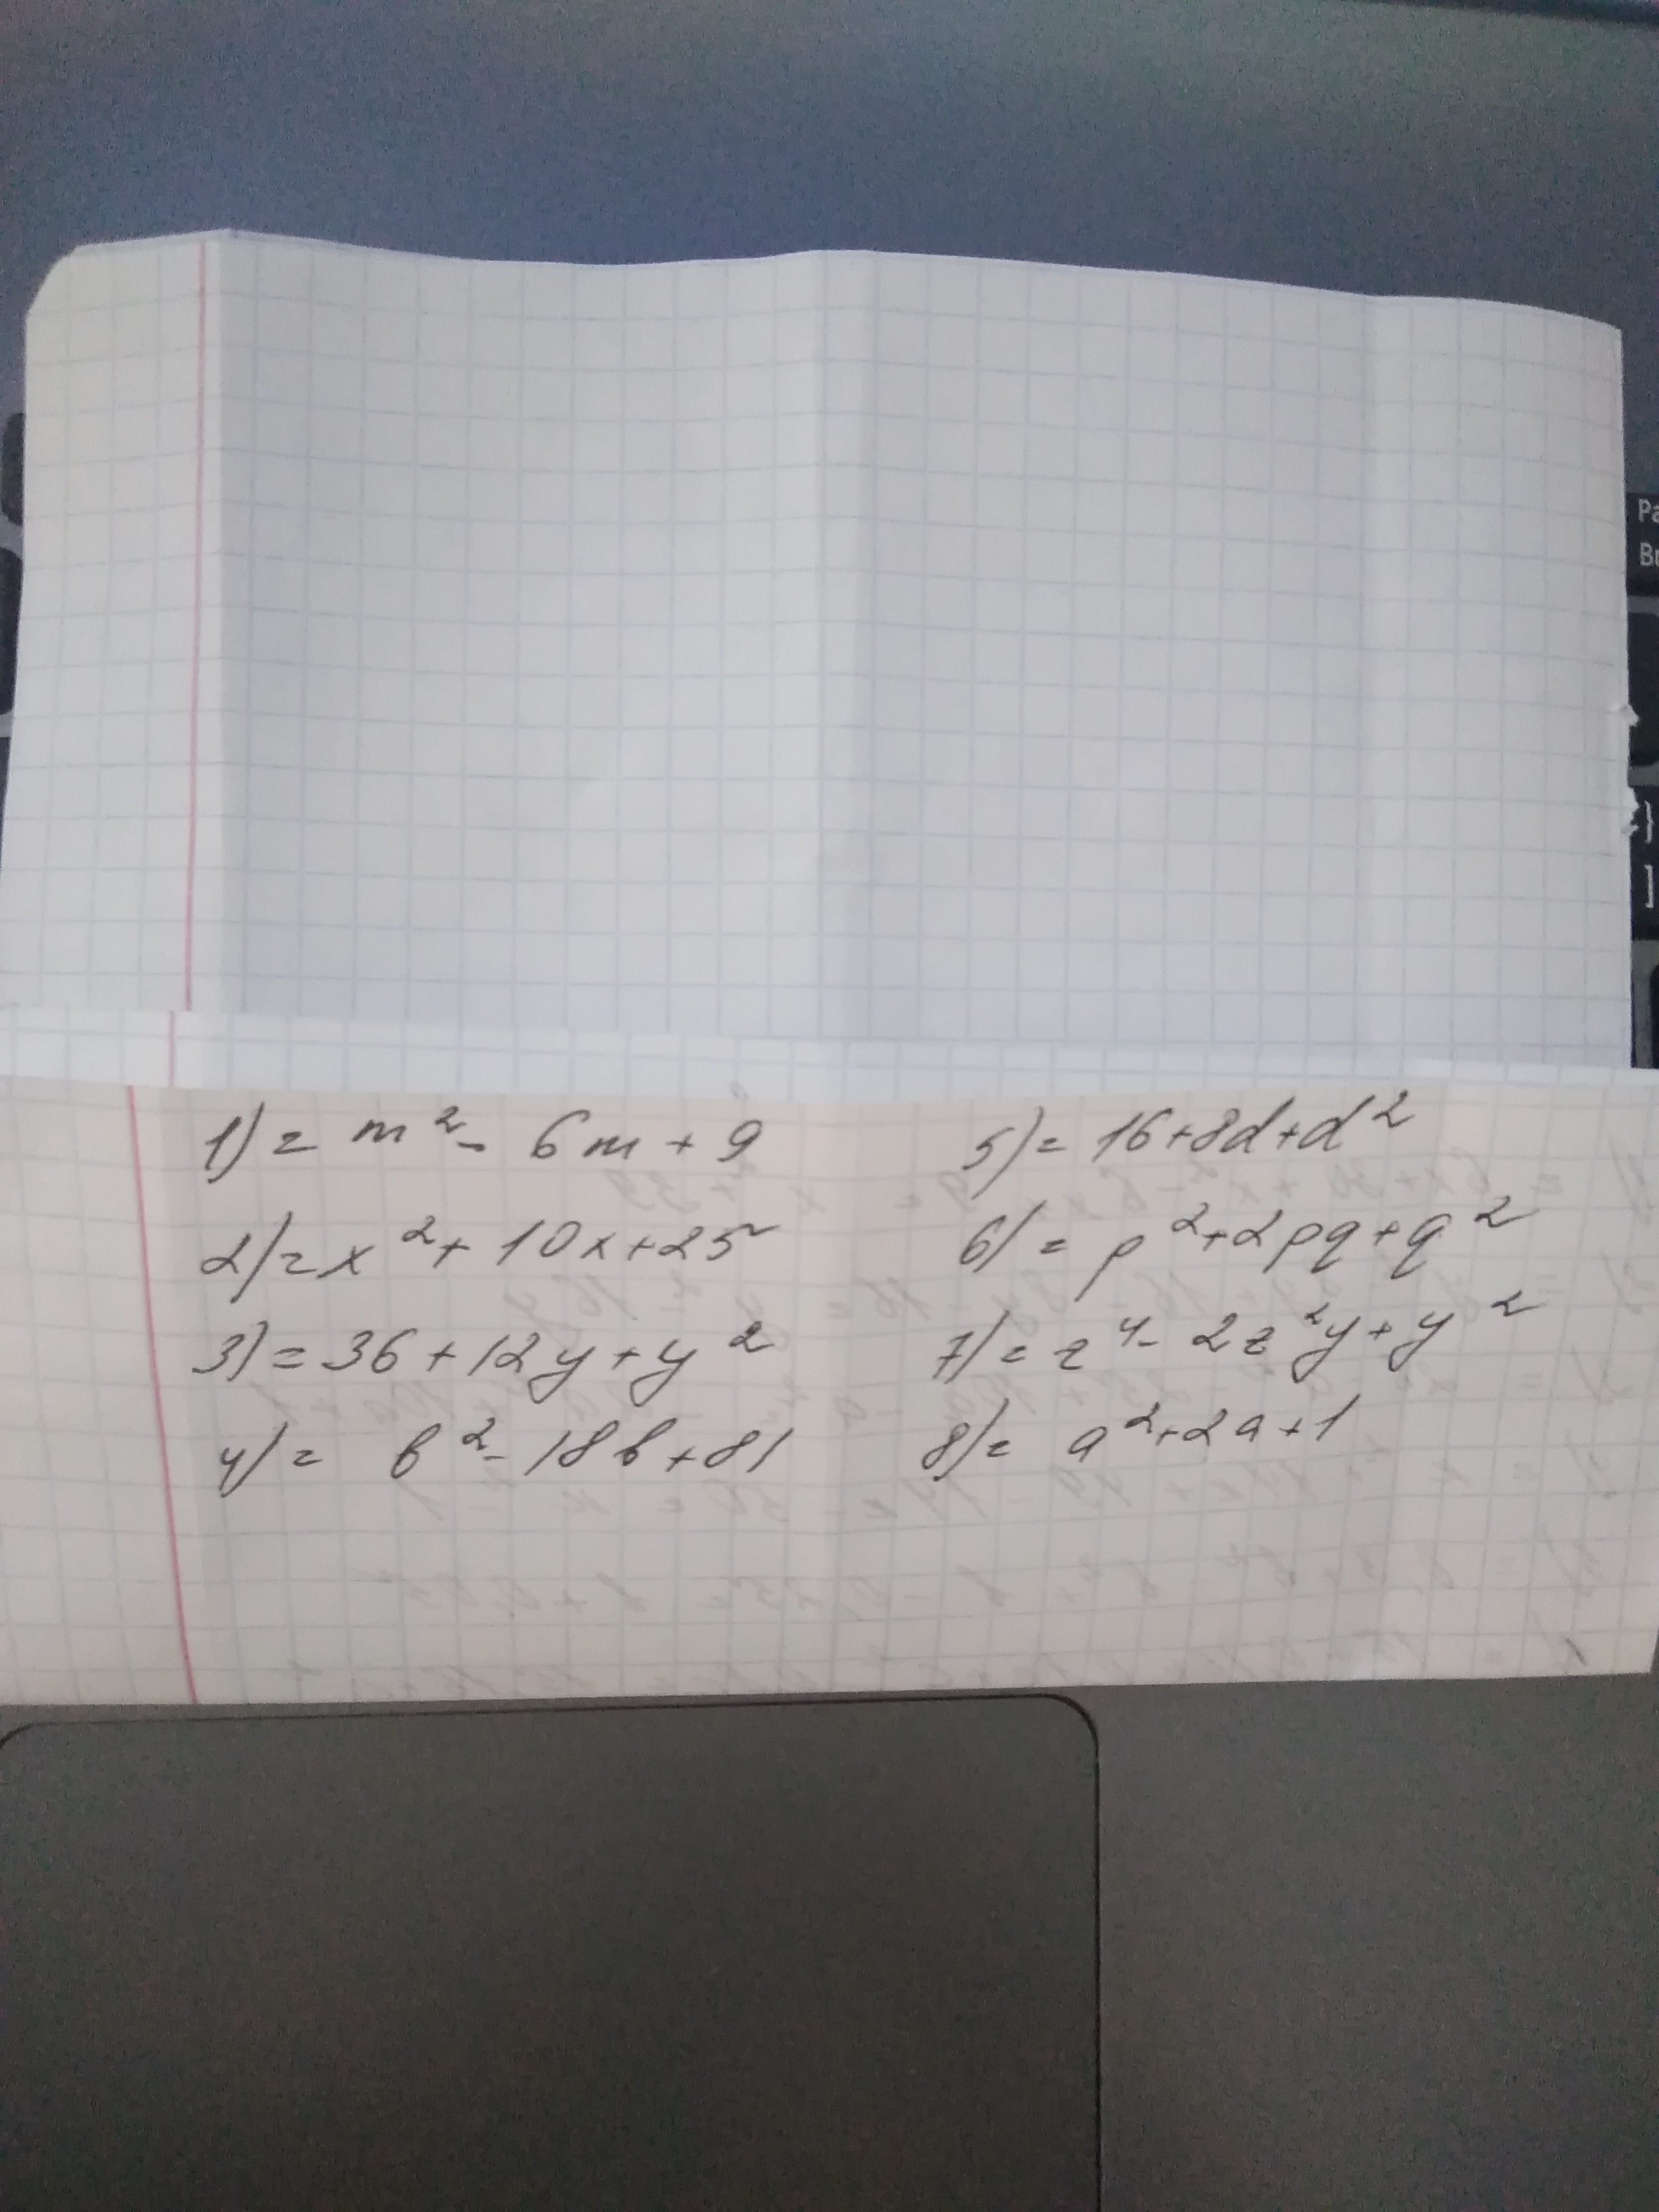 1) = m² - 6m + 9
2) = x² + 10x + 25
3) = 36 + 12y + y²
4) = b² - 18b + 81
5) = 16 + 8d + d²
6) = p² + 2pq + q²
7) = z⁴ - 2z²y + y²
8) = a² + 2a + 1
}
]